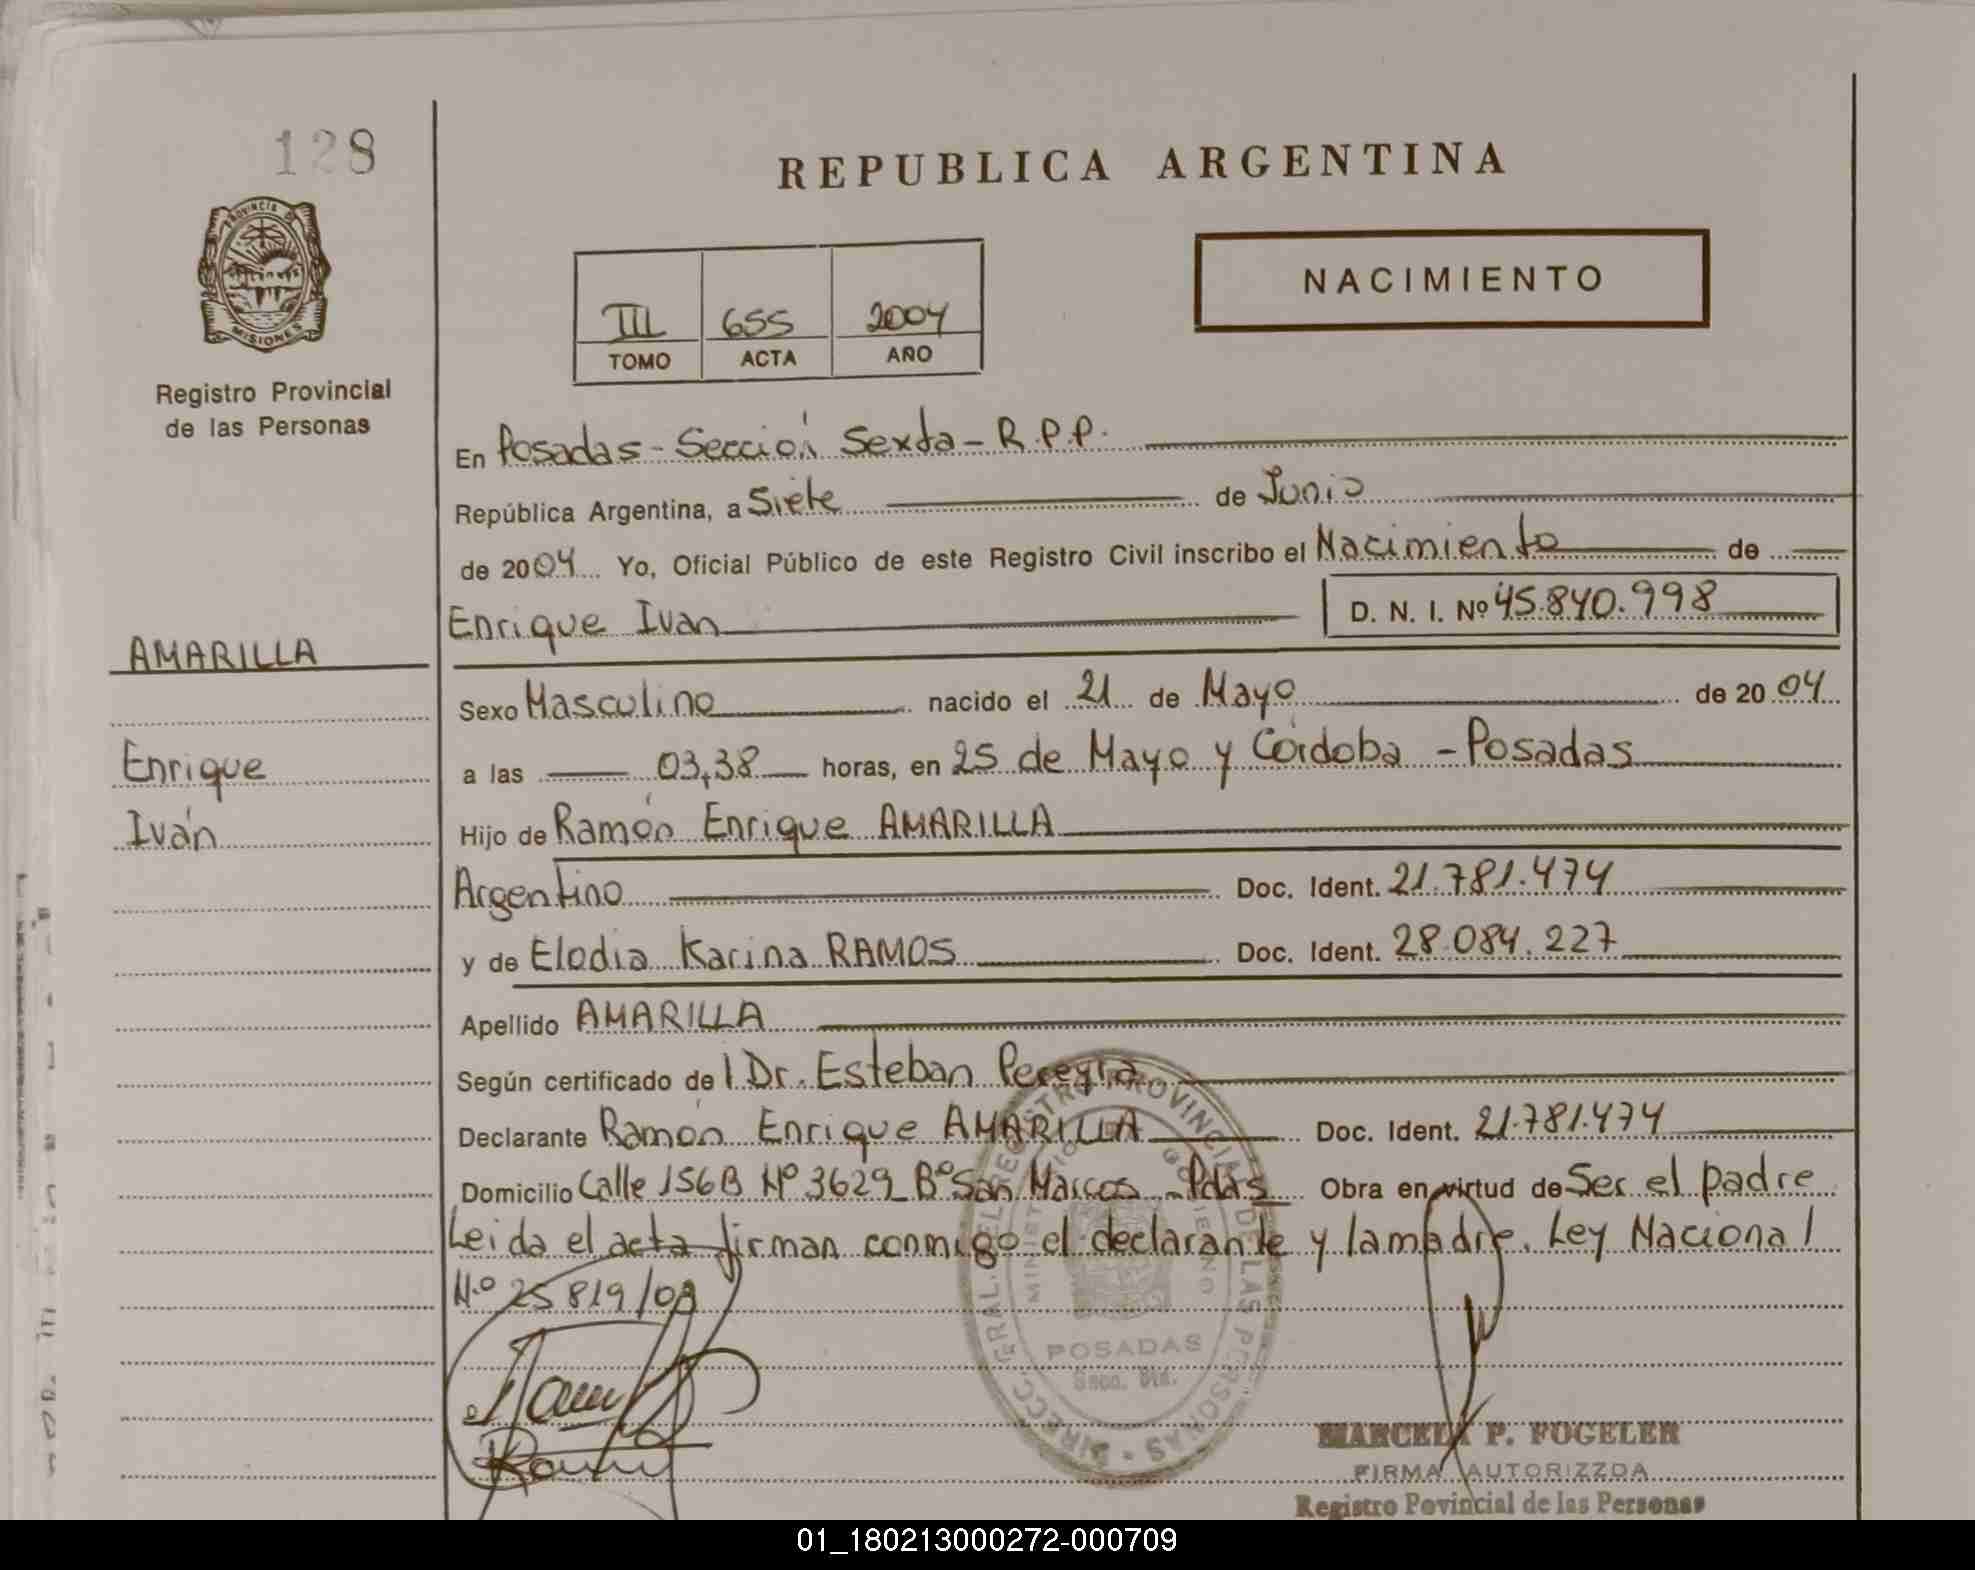 128
REPUBLICA ARGENTINA
PROVINCIA DE
MISIONES
NACIMIENTO
III 655 2004
TOMO ACTA AÑO
Registro Provincial
de las Personas
En Posadas - Sección Sexta - R.P.P.
República Argentina, a Siete de Junio
de 2004 Yo, Oficial Público de este Registro Civil inscribo el Nacimiento de
Enrique Ivan D. N. I. Nº 45.840.998
AMARILLA
Sexo Masculino nacido el 21 de Mayo de 2004
Enrique
a las 03,38 horas, en 25 de Mayo y Córdoba - Posadas
Iván
Hijo de Ramón Enrique AMARILLA
Argentino Doc. Ident. 21.781.474
y de Elodia Karina RAMOS Doc. Ident. 28.084.227
Apellido AMARILLA
Según certificado del Dr. Esteban Pereyra
Declarante Ramón Enrique AMARILLA Doc. Ident. 21.781.474
Domicilio Calle 156B Nº 3629 Bº San Marcos - Pdas Obra en virtud de Ser el padre
Leida el acta firman conmigo el declarante y la madre. Ley Nacional
N.º 25819/03
POSADAS
MARCELA P. FOGELER
FIRMA AUTORIZZDA
Registro Povincial de las Personas
01_180213000272-000709